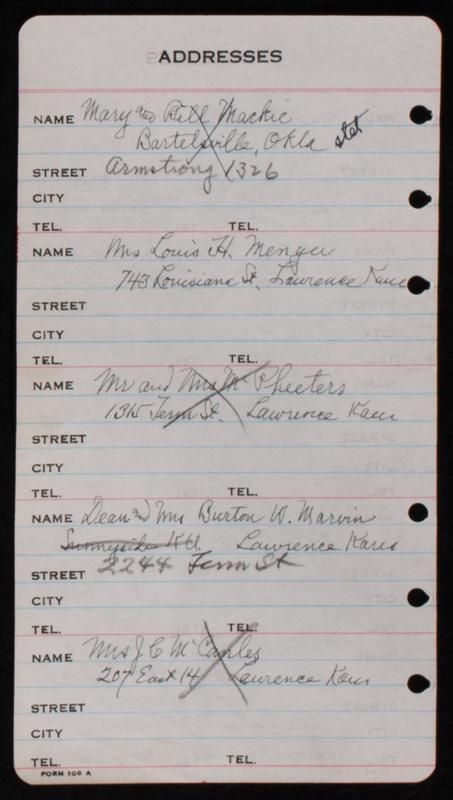 ADDRESSES
NAME Mary and Bill Mackie
Bartelsville, Okla stet
STREET Armstrong 1326
CITY
TEL. TEL.
NAME Mrs Louis H. Menger
743 Louisiana St. Lawrence Kans
STREET
CITY
TEL. TEL.
NAME Mr and Mrs McPheeters
1315 Tenn St. Lawrence Kans
STREET
CITY
TEL. TEL.
NAME Dean and Mrs Burton W. Marvin
Sunnyside Lawrence Kans
STREET 2244 Tenn St
CITY
TEL. TEL.
NAME Mrs J C McCanles
207 East 14 Lawrence Kans
STREET
CITY
TEL. TEL.
FORM 106 A